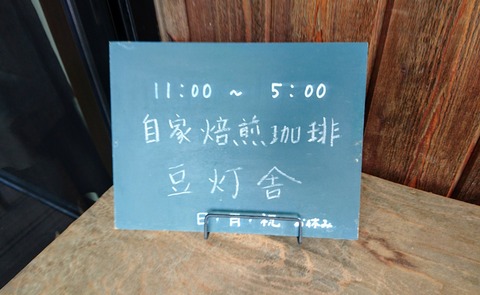 11:00 ~ 5:00
自家焙煎珈琲
豆灯舎
日・月・祝 お休み